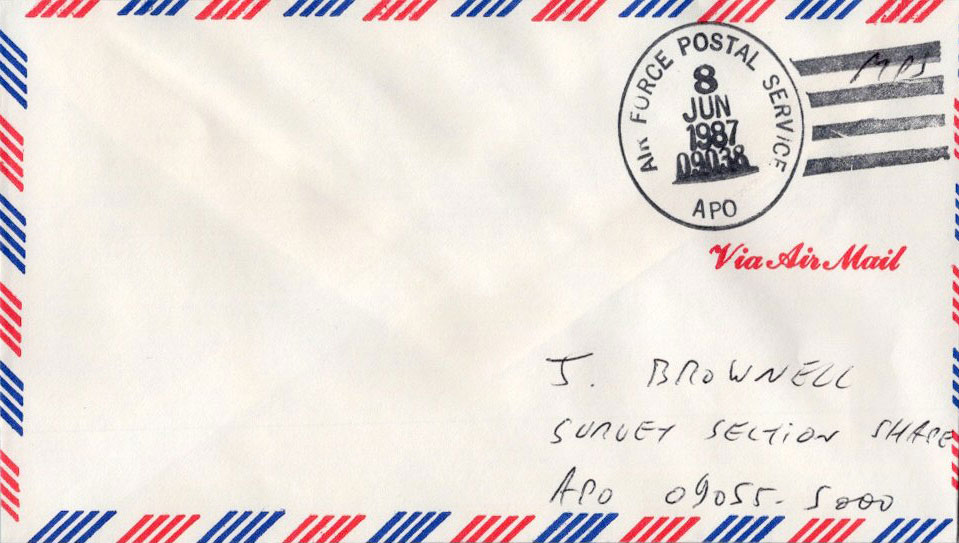 AIR FORCE POSTAL SERVICE
8
JUN
1987
09038
APO
MPS
Via Air Mail
J. BROWNELL
SURVEY SECTION SHAPE
APO 09055-5000